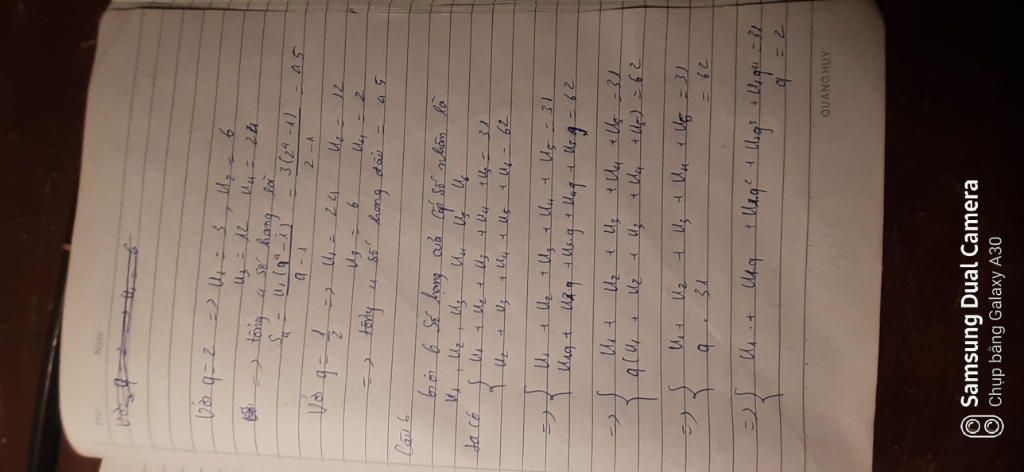 Thứ Ngày
Với q = 2 => u₁ = 6
Với q = 2 => u₁ = 3, u₂ = 6
u₃ = 12 u₄ = 24
=> tổng 4 số hạng là
S₄ = u₁(q⁴ - 1) / q - 1 = 3(2⁴ - 1) / 2 - 1 = 45
Với q = 1/2 => u₁ = 24 u₂ = 12
u₃ = 6 u₄ = 2
=> tổng 4 số hạng đầu = 45
Câu 6
Gọi 6 số hạng của cấp số nhân là
u₁, u₂, u₃ u₄ u₅ u₆
ta có { u₁ + u₂ + u₃ + u₄ + u₅ = 31
u₂ + u₃ + u₄ + u₅ + u₆ = 62
=> { u₁ + u₂ + u₃ + u₄ + u₅ = 31
u₁q + u₂q + u₃q + u₄q + u₅q = 62
=> { u₁ + u₂ + u₃ + u₄ + u₅ = 31
q(u₁ + u₂ + u₃ + u₄ + u₅) = 62
=> { u₁ + u₂ + u₃ + u₄ + u₅ = 31
q . 31 = 62
=> { u₁ + u₁q + u₁q² + u₁q³ + u₁q⁴ = 31
q = 2
QUANG HUY
Samsung Dual Camera
Chụp bằng Galaxy A30